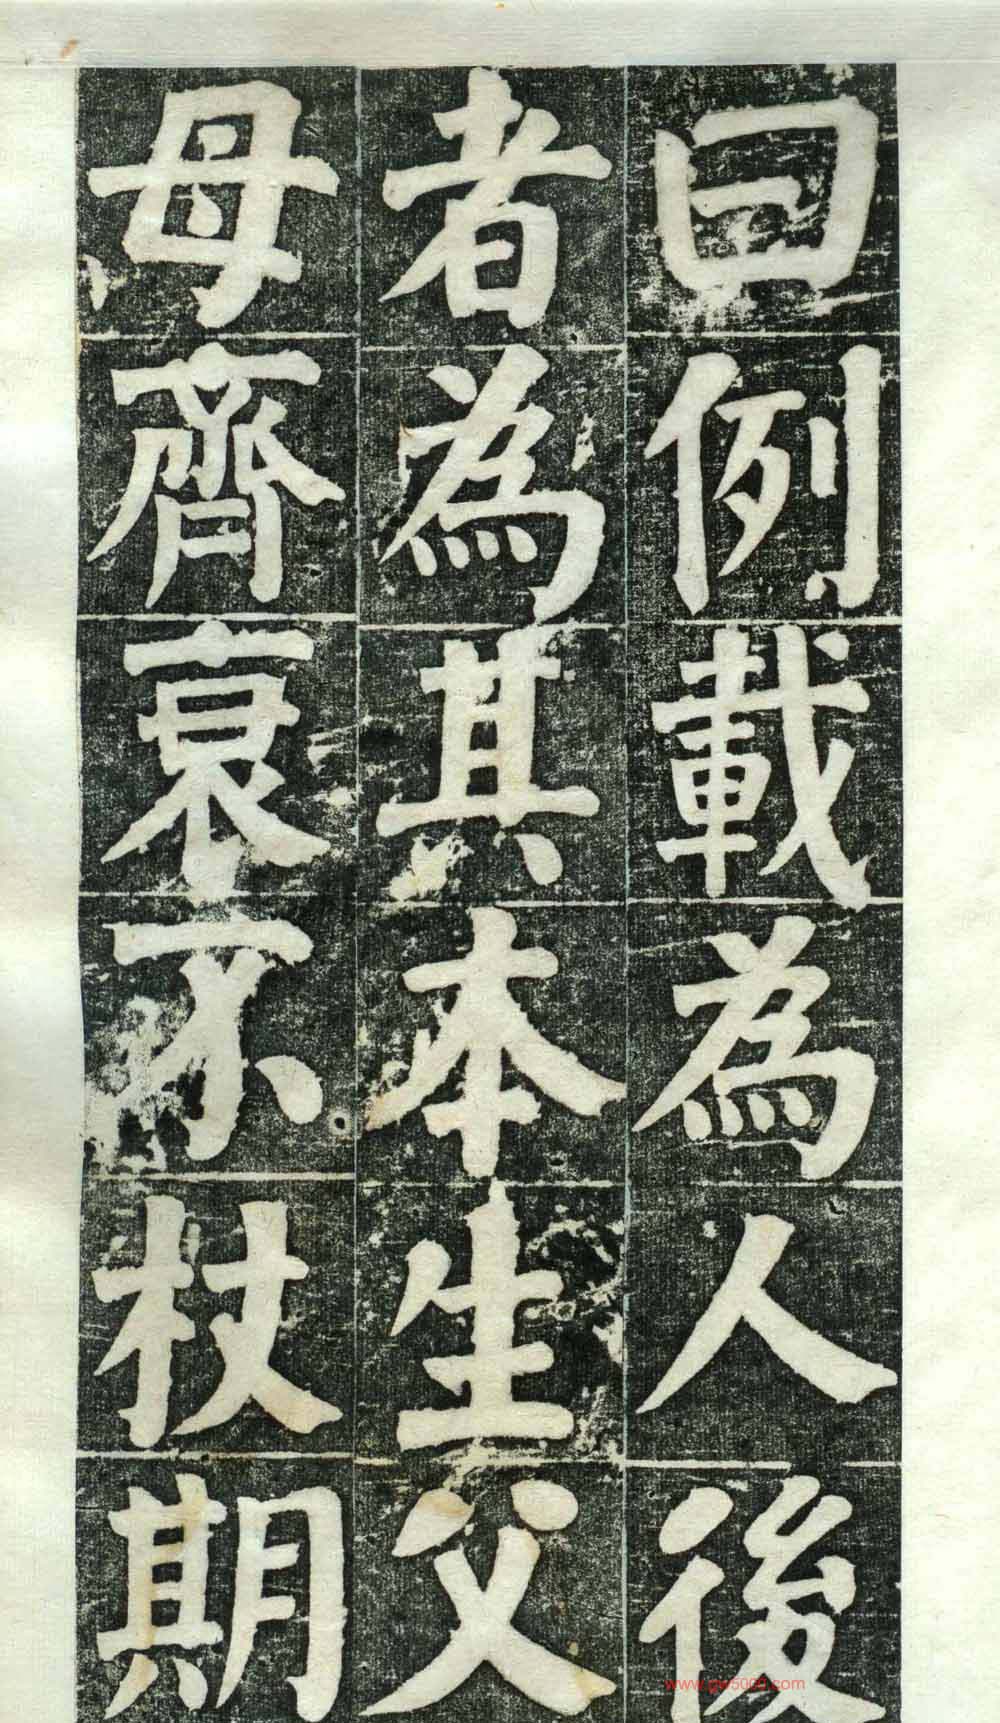 曰例載為人後
者為其本生父
母齊衰不杖期
www.gw5000.com